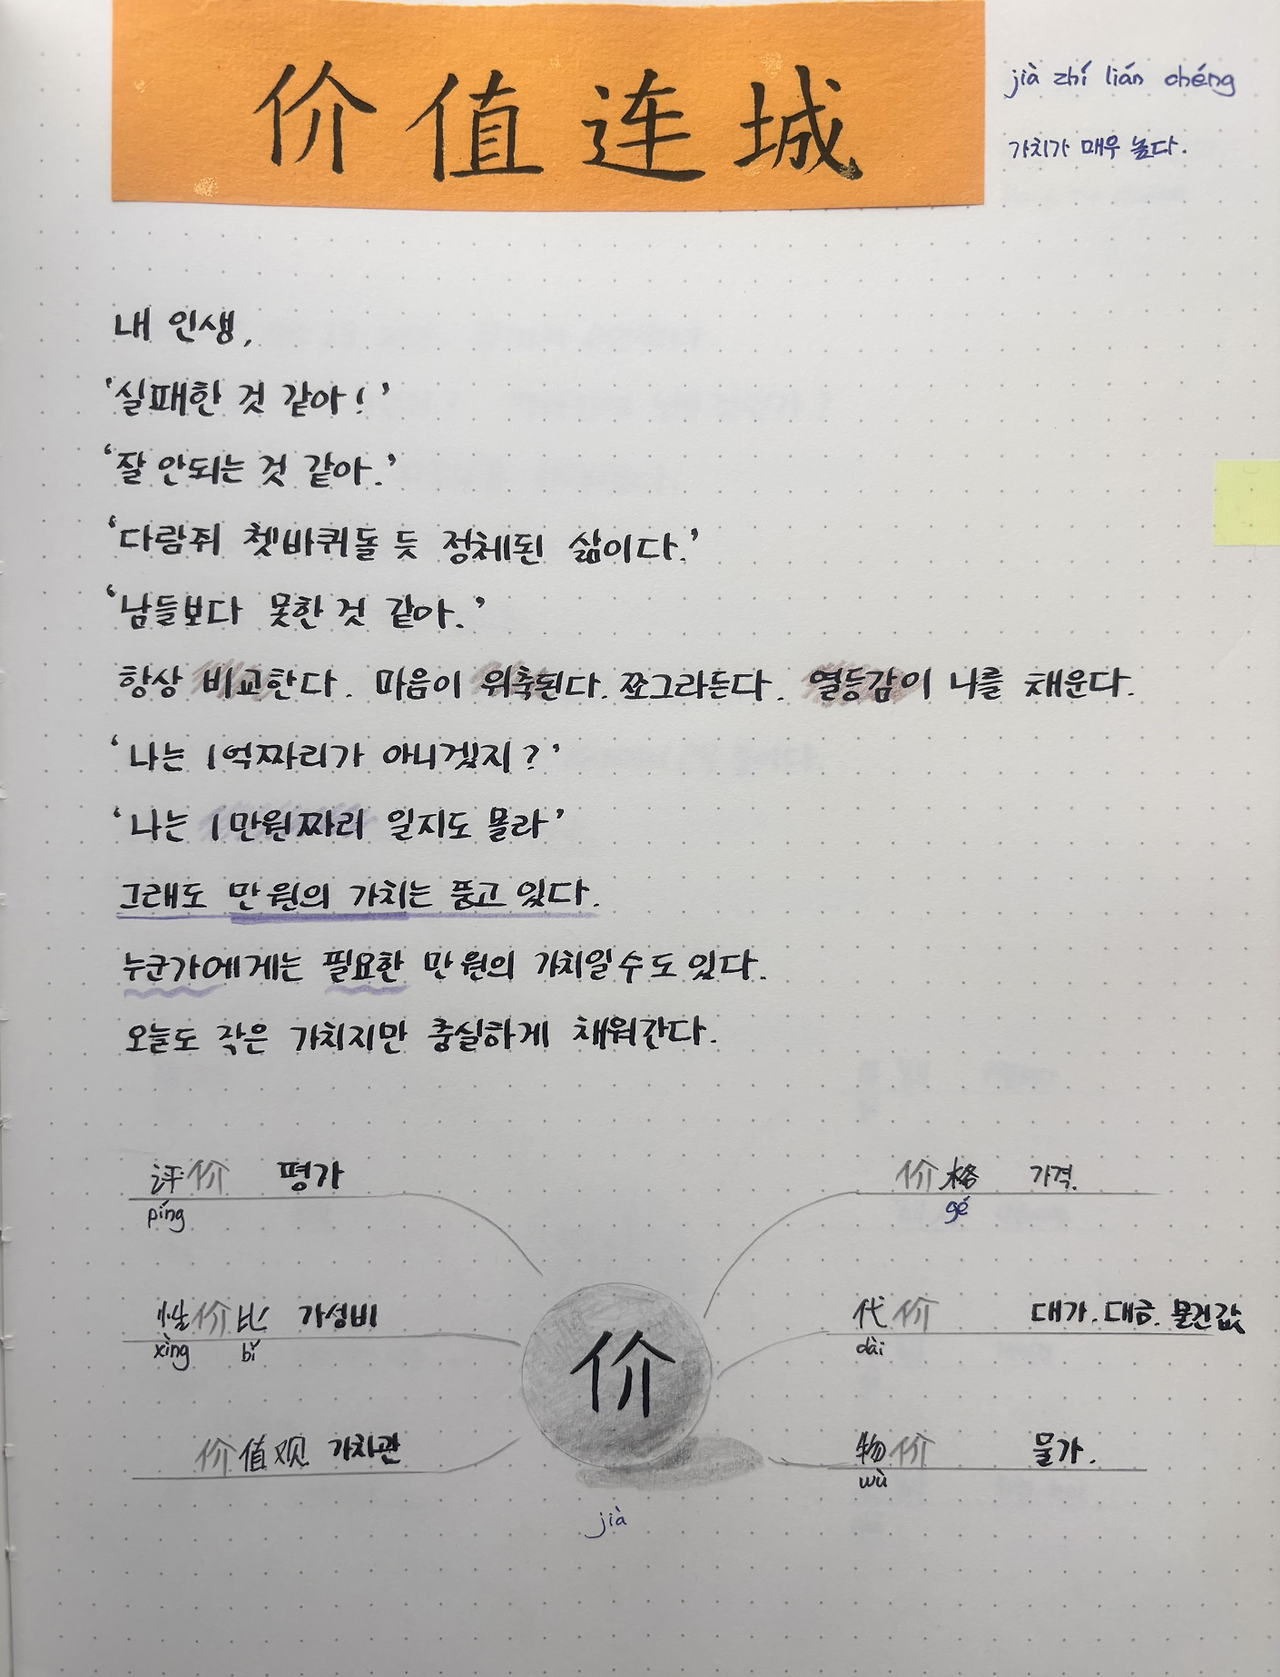 价值连城
jià zhí lián chéng
가치가 매우 높다.
내 인생,
'실패한 것 같아!'
'잘 안되는 것 같아.'
'다람쥐 쳇바퀴돌 듯 정체된 삶이다.'
'남들보다 못한 것 같아.'
항상 비교한다. 마음이 위축된다. 쪼그라든다. 열등감이 나를 채운다.
'나는 1억짜리가 아니겠지?'
'나는 1만원짜리 일지도 몰라'
그래도 만원의 가치는 품고 있다.
누군가에게는 필요한 만원의 가치일수도 있다.
오늘도 작은 가치지만 충실하게 채워간다.
评价 평가
píng
性价比 가성비
xìng bǐ
价值观 가치관
价
jià
价格 가격.
gé
代价 대가. 대금. 물건값
dài
物价 물가.
wù